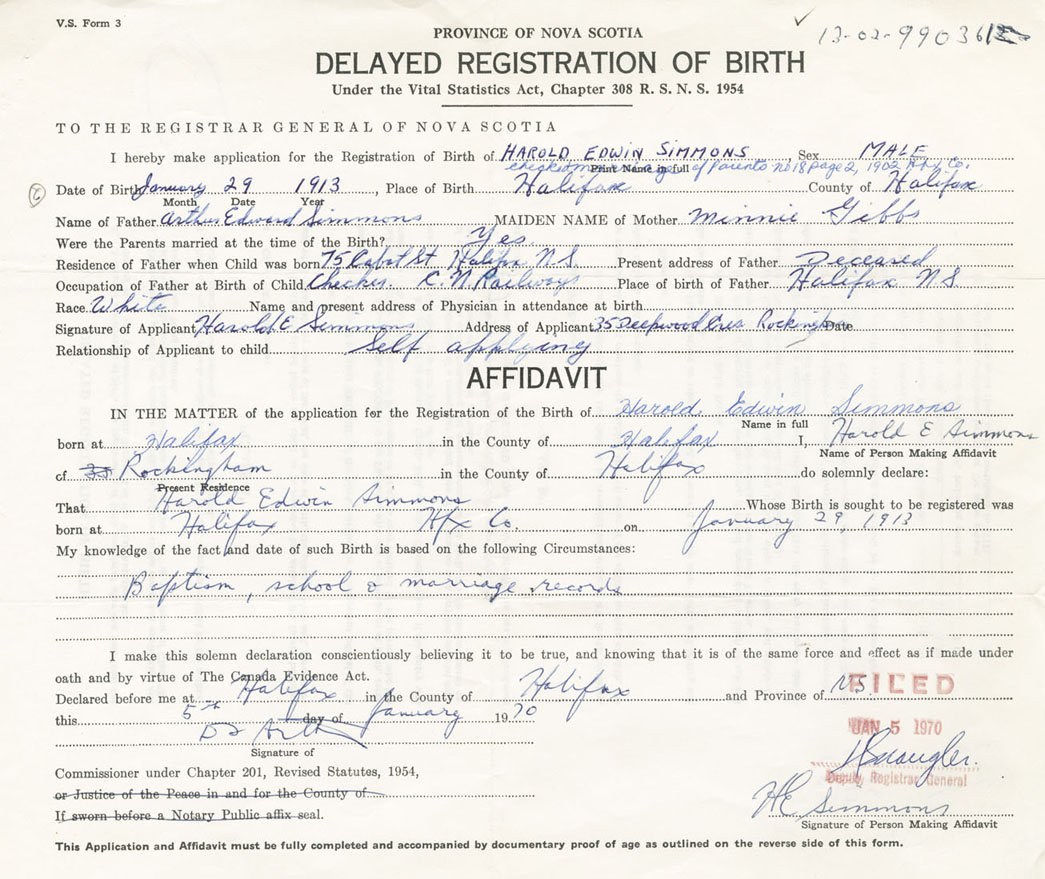 V.S. Form 3
13-02-99036
PROVINCE OF NOVA SCOTIA
DELAYED REGISTRATION OF BIRTH
Under the Vital Statistics Act, Chapter 308 R. S. N. S. 1954
TO THE REGISTRAR GENERAL OF NOVA SCOTIA
I hereby make application for the Registration of Birth of HAROLD EDWIN SIMMONS, Sex MALE
Print Name in full
checked marriage of Parents no 18 page 2, 1902 Hfx Co.
Date of Birth January 29 1913, Place of Birth Halifax County of Halifax
Month Date Year
Name of Father Arthur Edward Simmons MAIDEN NAME of Mother Minnie Gibbs
Were the Parents married at the time of the Birth? Yes
Residence of Father when Child was born 75 Cabot St. Halifax N.S. Present address of Father Deceased
Occupation of Father at Birth of Child Checker C.N. Railways Place of birth of Father Halifax N.S.
Race White Name and present address of Physician in attendance at birth
Signature of Applicant Harold E Simmons Address of Applicant 35 Deepwood Cres Rockingham Date
Relationship of Applicant to child Self applying
AFFIDAVIT
IN THE MATTER of the application for the Registration of the Birth of Harold Edwin Simmons
Name in full
born at Halifax in the County of Halifax I, Harold E Simmons
Name of Person Making Affidavit
of Rockingham in the County of Halifax do solemnly declare:
Present Residence
That Harold Edwin Simmons Whose Birth is sought to be registered was
born at Halifax Hfx Co. on January 29, 1913
My knowledge of the fact and date of such Birth is based on the following Circumstances:
Baptism, school & marriage records
I make this solemn declaration conscientiously believing it to be true, and knowing that it is of the same force and effect as if made under
oath and by virtue of The Canada Evidence Act.
Declared before me at Halifax in the County of Halifax and Province of N.S.
FILED
this 5th day of January 1970
JAN 5 1970
Signature of
Deputy Registrar General
Commissioner under Chapter 201, Revised Statutes, 1954,
or Justice of the Peace in and for the County of
If sworn before a Notary Public affix seal.
HE Simmons
Signature of Person Making Affidavit
This Application and Affidavit must be fully completed and accompanied by documentary proof of age as outlined on the reverse side of this form.